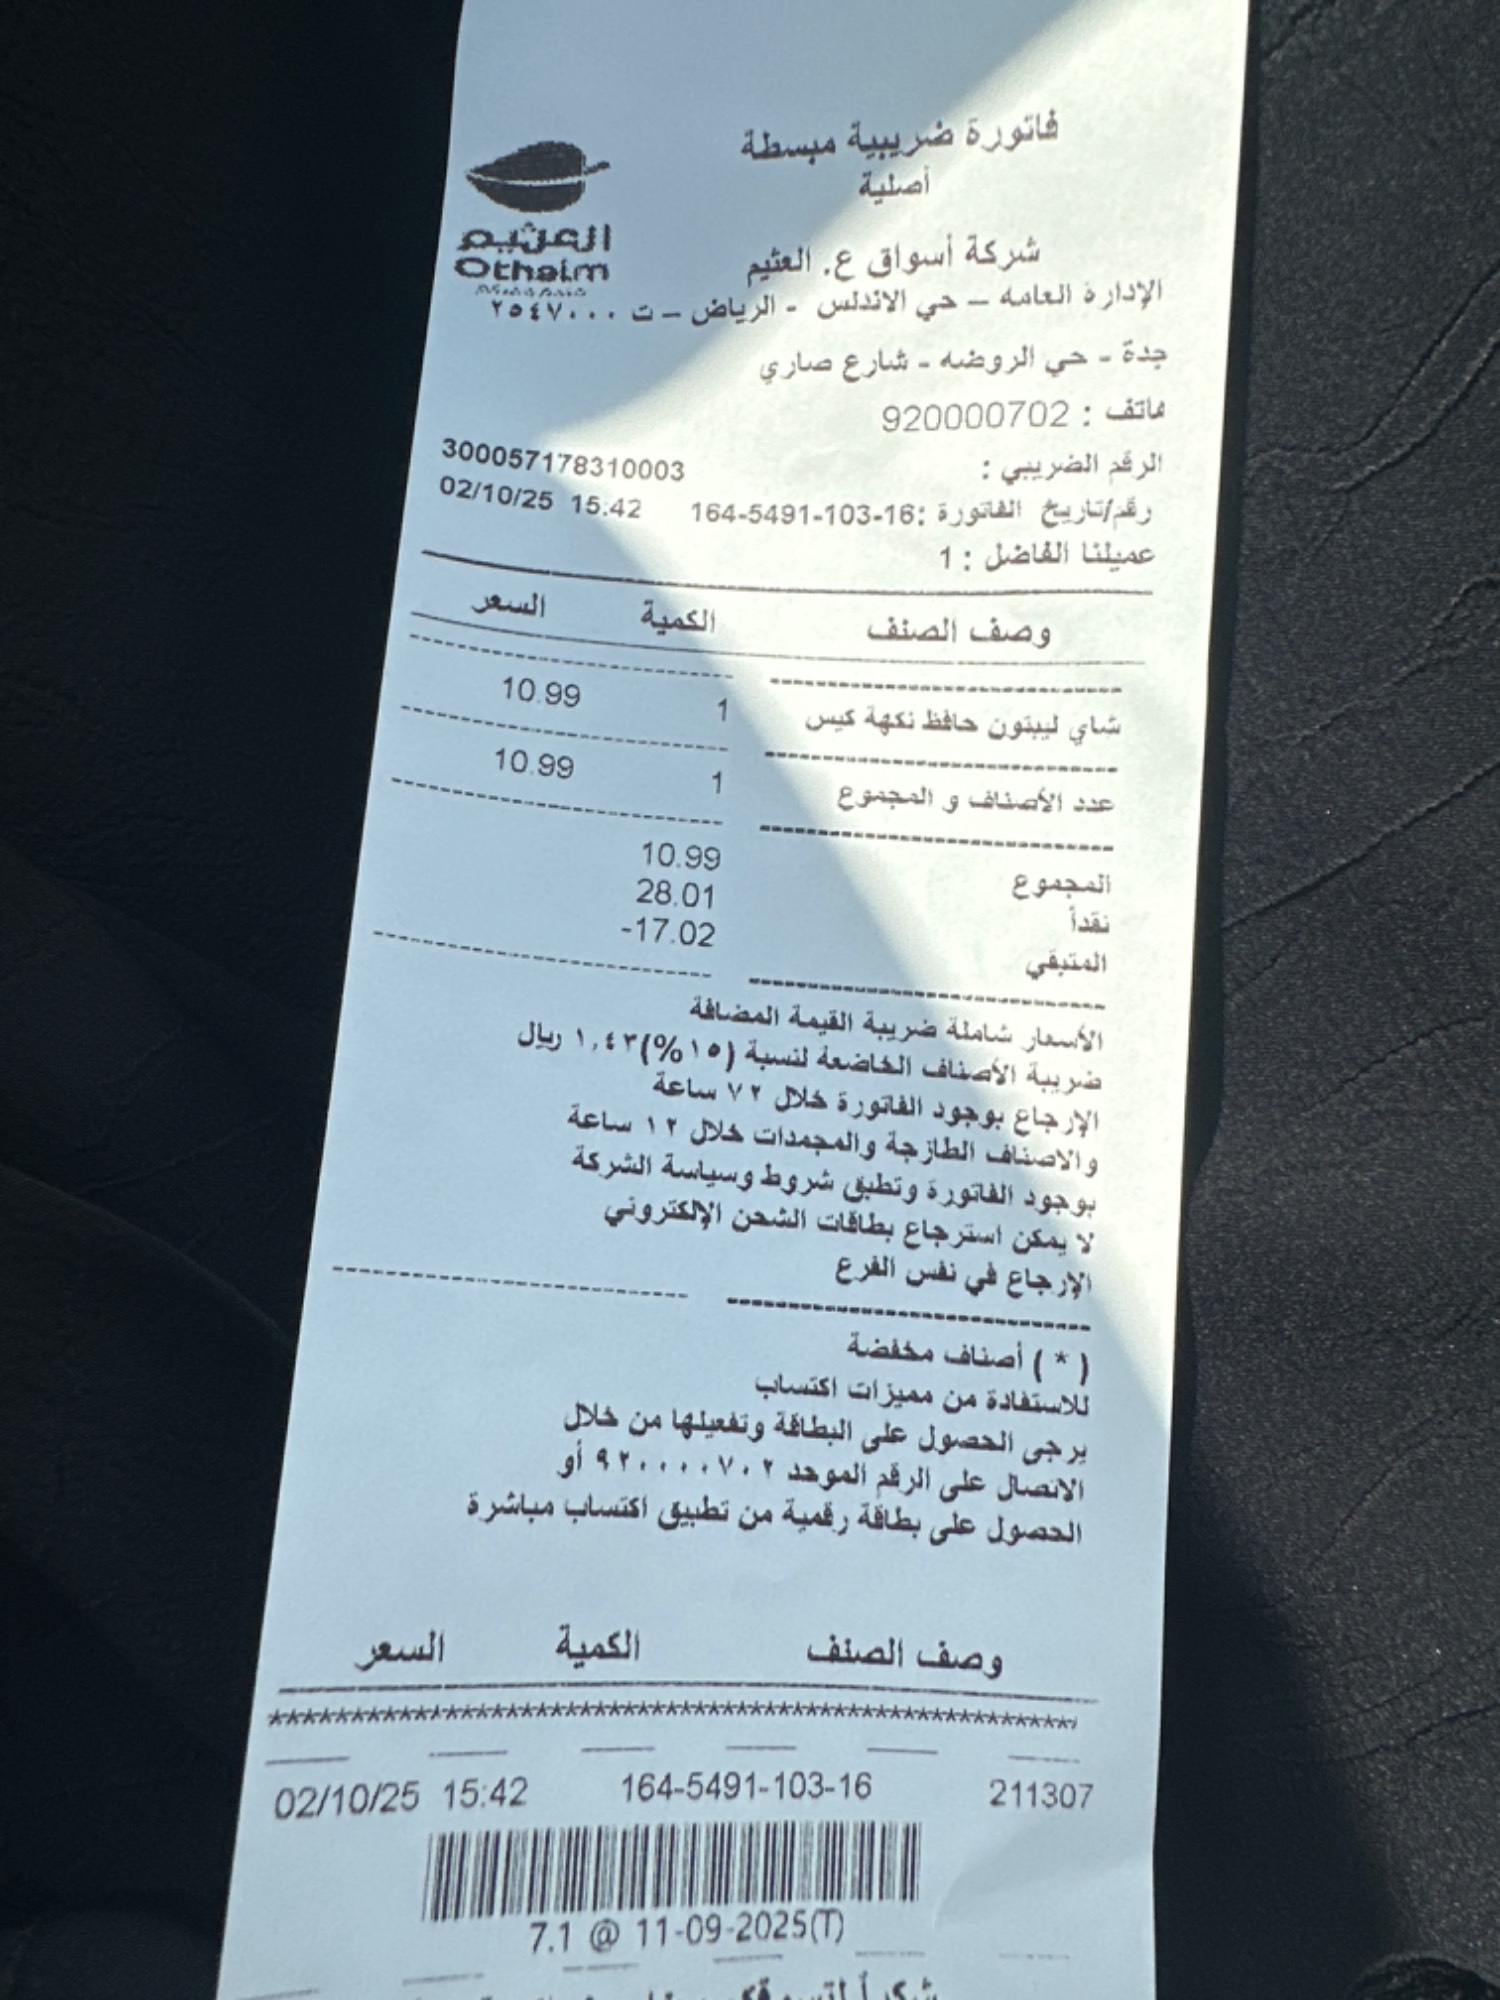 فاتورة ضريبية مبسطة
أصلية
العثيم
Othaim
شركة أسواق ع. العثيم
الإدارة العامه – حي الاندلس - الرياض – ت ٢٥٤٧٠٠٠
جدة - حي الروضه - شارع صاري
هاتف : 920000702
الرقم الضريبي : 300057178310003
رقم/تاريخ الفاتورة :164-5491-103-16 02/10/25 15:42
عميلنا الفاضل : 1
وصف الصنف الكمية السعر
شاي ليبتون حافظ نكهة كيس 1 10.99
عدد الأصناف و المجموع 1 10.99
المجموع 10.99
نقداً 28.01
المتبقي -17.02
الأسعار شاملة ضريبة القيمة المضافة
ضريبة الأصناف الخاضعة لنسبة (١٥%)١,٤٣ ريال
الإرجاع بوجود الفاتورة خلال ٧٢ ساعة
والاصناف الطازجة والمجمدات خلال ١٢ ساعة
بوجود الفاتورة وتطبق شروط وسياسة الشركة
لا يمكن استرجاع بطاقات الشحن الإلكتروني
الإرجاع في نفس الفرع
( * ) أصناف مخفضة
للاستفادة من مميزات اكتساب
يرجى الحصول على البطاقة وتفعيلها من خلال
الاتصال على الرقم الموحد ٩٢٠٠٠٠٧٠٢ أو
الحصول على بطاقة رقمية من تطبيق اكتساب مباشرة
وصف الصنف الكمية السعر
02/10/25 15:42 164-5491-103-16 211307
7.1 @ 11-09-2025(T)